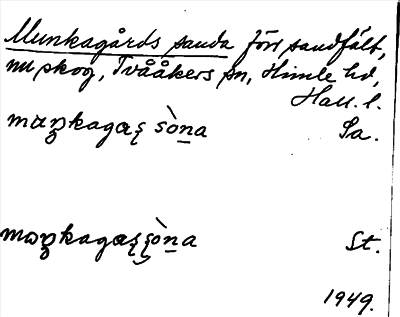 Munkagårds sanda förr sandfält,
nu skog, Tvååkers sn, Himle hd,
Hall. l.
muŋkagaʂ sòna Sa.
məŋkagaʂʂòna St.
1949.